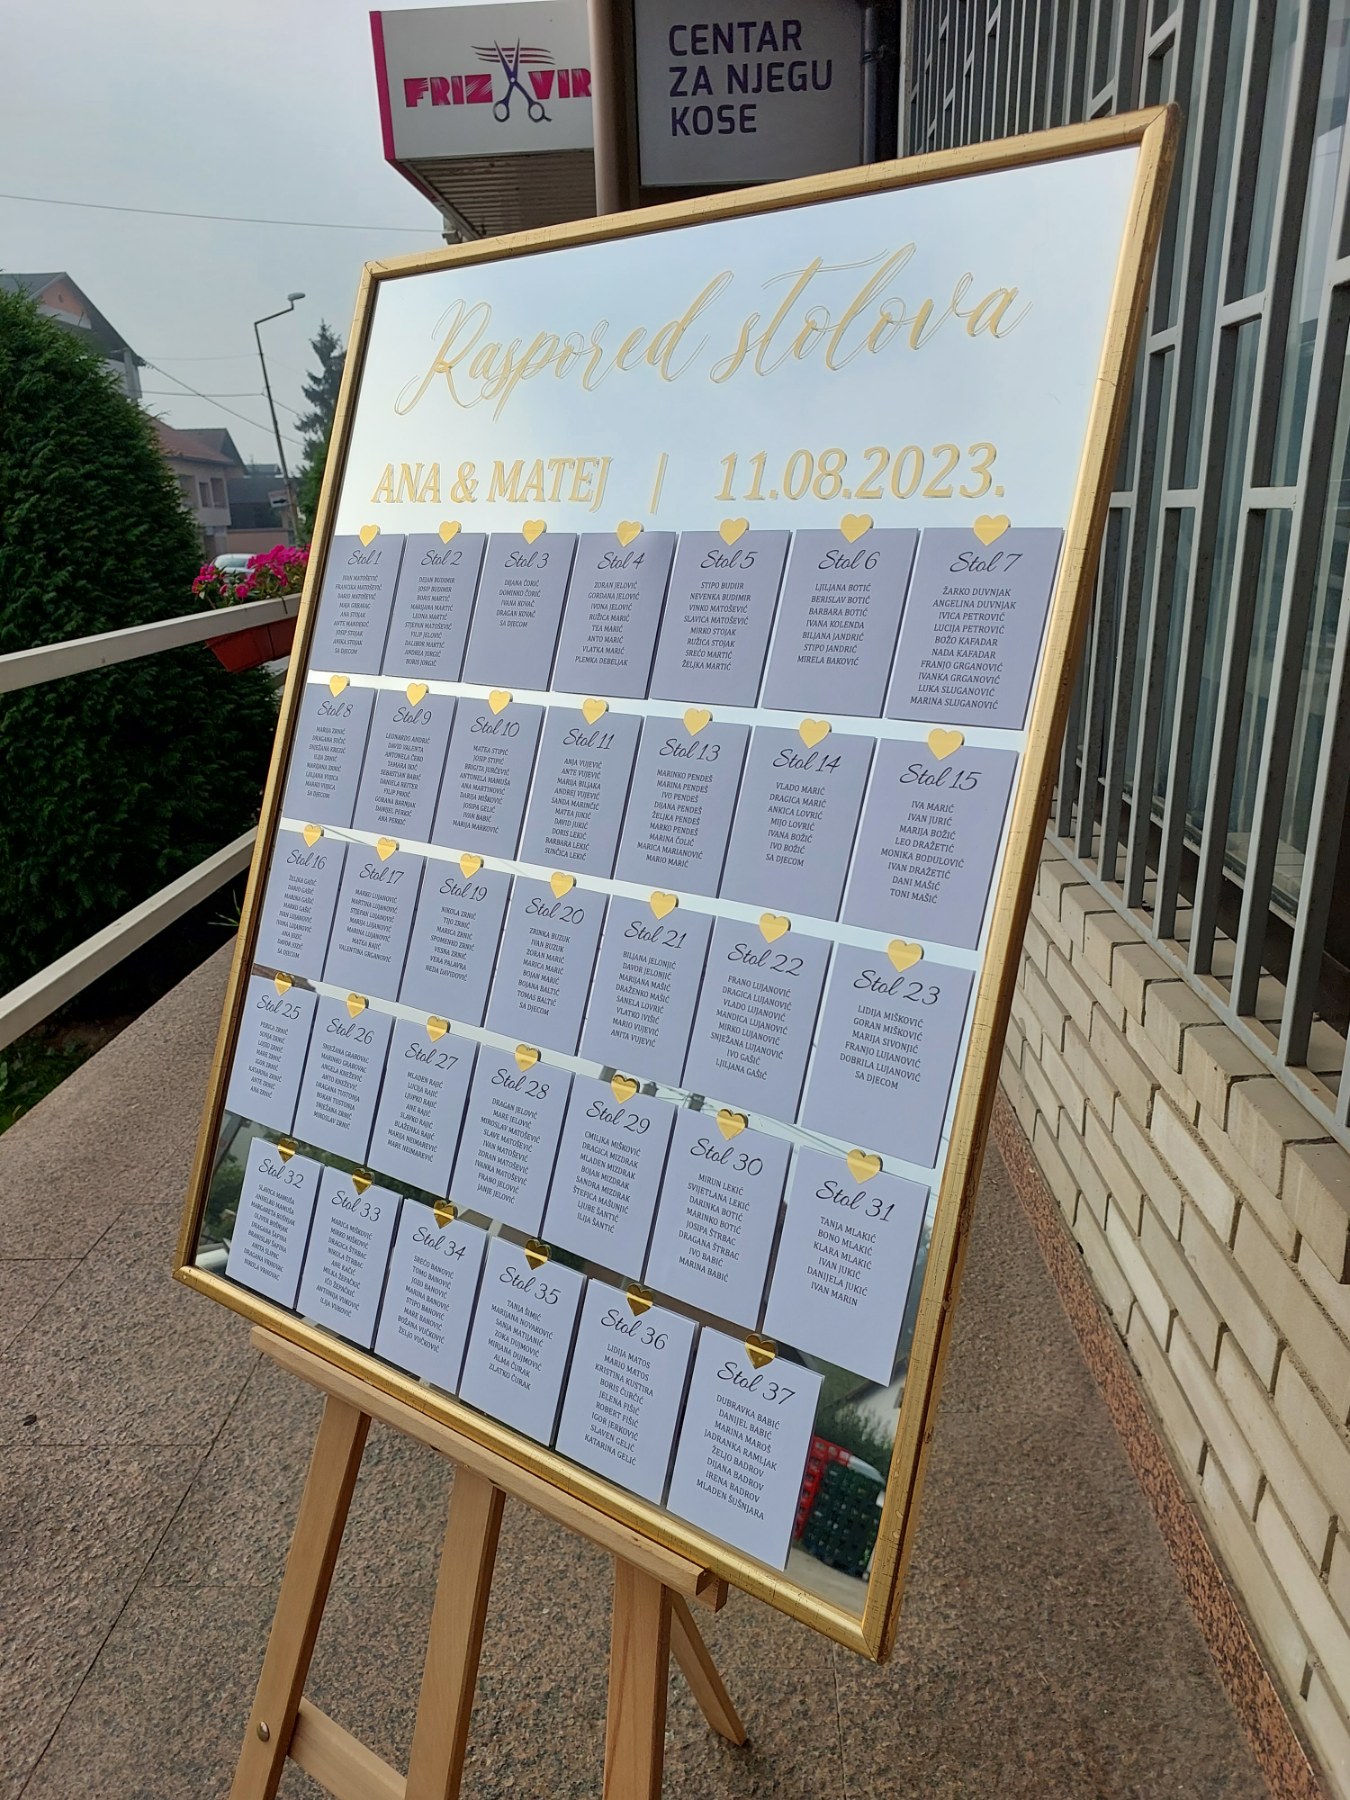 FRIZ VIR
CENTAR
ZA NJEGU
KOSE
Raspored stolova
ANA & MATEJ | 11.08.2023.
Stol 1
IVAN MATOŠEVIĆ
FRANCIKA MATOŠEVIĆ
DARIO MATOŠEVIĆ
MAJA GRBAVAC
ANA STOJAK
JOSIP STOJAK
ANKICA STOJAK
SA DJECOM
Stol 2
DEJAN BUDIMIR
JOSIP BUDIMIR
BORIS MARTIĆ
MARIJANA MARTIĆ
LEONA MARTIĆ
STJEPAN MATOŠEVIĆ
FILIP JELOVIĆ
DALIBOR MARTIĆ
ANDREA JURGIĆ
BORIS JURGIĆ
Stol 3
DIJANA ČORIĆ
DOMENKO ČORIĆ
IVANA KOVAČ
DRAGAN KOVAČ
SA DJECOM
Stol 4
ZORAN JELOVIĆ
GORDANA JELOVIĆ
IVONA JELOVIĆ
RUŽICA MARIĆ
TEA MARIĆ
ANTO MARIĆ
VLATKA MARIĆ
PLENKA DEBELJAK
Stol 5
STIPO BUDIJIR
NEVENKA BUDIMIR
VINKO MATOŠEVIĆ
SLAVICA MATOŠEVIĆ
MIRKO STOJAK
RUŽICA STOJAK
SREĆO MARTIĆ
ŽELJKA MARTIĆ
Stol 6
LJILJANA BOTIĆ
BERISLAV BOTIĆ
BARBARA BOTIĆ
IVANA KOLENDA
BILJANA JANDRIĆ
STIPO JANDRIĆ
MIRELA BAKOVIĆ
Stol 7
ŽARKO DUVNJAK
ANGELINA DUVNJAK
IVICA PETROVIĆ
LUCIJA PETROVIĆ
BOŽO KAFADAR
NADA KAFADAR
FRANJO GRGANOVIĆ
IVANKA GRGANOVIĆ
LUKA SLUGANOVIĆ
MARINA SLUGANOVIĆ
Stol 8
MARIJA ZRNIĆ
ILIJA ZRNIĆ
MARIJANA ZRNIĆ
LJILJANA VUJICA
MARKO VUJICA
SA DJECOM
Stol 9
LEONARDO ANDRIĆ
DAVID VALENTA
ANTONELA ČERO
TAMARA IKIĆ
SEBASTIJAN BABIĆ
DANIELA REITER
FILIP PRKIĆ
GORANA BARNJAK
DANIJEL PERKIĆ
ANA PERKIĆ
Stol 10
MATEA STIPIĆ
JOSIP STIPIĆ
BRIGITA JURČEVIĆ
ANTONELA MANUŠA
ANA MARTINOVIĆ
DARIJA MIŠKOVIĆ
JOSIPA GELIĆ
IVAN BABIĆ
MARIJA MARKOVIĆ
Stol 11
ANJA VUJEVIĆ
ANTE VUJEVIĆ
MARIJA BILJAKA
ANDREJ VUJEVIĆ
SANDA MARINČIĆ
MATEA JUKIĆ
DAVID JUKIĆ
DORIS LEKIĆ
BARBARA LEKIĆ
SUNČICA LEKIĆ
Stol 13
MARINKO PENDEŠ
MARINA PENDEŠ
IVO PENDEŠ
DIJANA PENDEŠ
ŽELJKA PENDEŠ
MARKO PENDEŠ
MARINA ČOLIĆ
MARICA MARIANOVIĆ
MARIO MARIĆ
Stol 14
VLADO MARIĆ
DRAGICA MARIĆ
ANKICA LOVRIĆ
MIJO LOVRIĆ
IVANA BOŽIĆ
IVO BOŽIĆ
SA DJECOM
Stol 15
IVA MARIĆ
IVAN JURIĆ
MARIJA BOŽIĆ
LEO DRAŽETIĆ
MONIKA BODULOVIĆ
IVAN DRAŽETIĆ
DANI MAŠIĆ
TONI MAŠIĆ
Stol 16
ŽELJKA GAŠIĆ
DARIO GAŠIĆ
MARINA GAŠIĆ
MARKO GAŠIĆ
IVAN LUJANOVIĆ
IVANA LUJANOVIĆ
SA DJECOM
Stol 17
MARKO LUJANOVIĆ
MARTINA LUJANOVIĆ
STJEPAN LUJANOVIĆ
MARIJA LUJANOVIĆ
MARINA LUJANOVIĆ
MATEA RAJIĆ
VALENTINA GAGANOVIĆ
Stol 19
NIKOLA ZRNIĆ
TIJO ZRNIĆ
MARICA ZRNIĆ
SPOMENKO ZRNIĆ
VESNA ZRNIĆ
VERA PALAVRA
NEDA DAVIDOVIĆ
Stol 20
ZRINKA BUZUK
IVAN BUZUK
ZORAN MARIĆ
MARICA MARIĆ
BOJAN MARIĆ
BOJANA BALTIĆ
TOMAS BALTIĆ
SA DJECOM
Stol 21
BILJANA JELONJIĆ
DAVOR JELONJIĆ
MARIJANA MAŠIĆ
DRAŽENKO MAŠIĆ
SANELA LOVRIĆ
VLATKO IVIŠIĆ
MARIO VUJEVIĆ
ANITA VUJEVIĆ
Stol 22
FRANO LUJANOVIĆ
DRAGICA LUJANOVIĆ
VLADO LUJANOVIĆ
MANDICA LUJANOVIĆ
MIRKO LUJANOVIĆ
SNJEŽANA LUJANOVIĆ
IVO GAŠIĆ
LJILJANA GAŠIĆ
Stol 23
LIDIJA MIŠKOVIĆ
GORAN MIŠKOVIĆ
MARIJA SIVONJIĆ
FRANJO LUJANOVIĆ
DOBRILA LUJANOVIĆ
SA DJECOM
Stol 25
PERICA ZRNIĆ
SONJA ZRNIĆ
LUJZO ZRNIĆ
MARE ZRNIĆ
IGOR ZRNIĆ
KATARINA ZRNIĆ
ANTE ZRNIĆ
ANA ZRNIĆ
Stol 26
SNJEŽANA GRABOVAC
MARINKO GRABOVAC
ANGELA KNEŽEVIĆ
ANTO KNEŽEVIĆ
DRAGANA TUSTONJA
DUŠAN TUSTONJA
SNJEŽANA ZRNIĆ
MIROSLAV ZRNIĆ
Stol 27
MLADEN RAJIĆ
LUCIJA RAJIĆ
LJUPKO RAJIĆ
ANE RAJIĆ
SLAVKO RAJIĆ
BLAŽENKA RAJIĆ
MARIJA NEUMAREVIĆ
MARE NEUMAREVIĆ
Stol 28
DRAGAN JELOVIĆ
MARE JELOVIĆ
MIROSLAV MATOŠEVIĆ
SLAVE MATOŠEVIĆ
IVAN MATOŠEVIĆ
ZORAN MATOŠEVIĆ
IVANKA MATOŠEVIĆ
FRANO JELOVIĆ
JANJE JELOVIĆ
Stol 29
CMILJKA MIŠKOVIĆ
DRAGICA MIZDRAK
MLADEN MIZDRAK
BOJAN MIZDRAK
SANDRA MIZDRAK
ŠTEFICA MAŠUNJIĆ
LJUBE ŠANTIĆ
ILIJA ŠANTIĆ
Stol 30
MIRUN LEKIĆ
SVIJETLANA LEKIĆ
DARINKA BOTIĆ
MARINKO BOTIĆ
JOSIPA ŠTRBAC
DRAGANA ŠTRBAC
IVO BABIĆ
MARINA BABIĆ
Stol 31
TANJA MLAKIĆ
BONO MLAKIĆ
KLARA MLAKIĆ
IVAN JUKIĆ
DANIJELA JUKIĆ
IVAN MARIN
Stol 32
SLAVICA MANUŠA
ANĐELKO MANUŠA
MARGARETA BOŠNJAK
OLIVER BOŠNJAK
DRAGANA SAPINA
BRANISLAV SAPINA
DRAGANA VNNOVAC
NIKOLA VNNOVAC
Stol 33
MARICA MIŠKOVIĆ
MIRKO MIŠKOVIĆ
DRAGICA ŠTRBAC
NIKOLA ŠTRBAC
ANE RAČIĆ
MILKA ŽEPAČKIĆ
IĆO ŽEPAČKIĆ
ANTONIJA VUKOVIĆ
ILIJA VUKOVIĆ
Stol 34
SREĆO BANOVIĆ
TOMO BANOVIĆ
JOZO BANOVIĆ
MARINA BANOVIĆ
STIPO BANOVIĆ
MARE BANOVIĆ
BOŽANA VUČKOVIĆ
ŽELJO VUČKOVIĆ
Stol 35
TANJA ŠIMIĆ
MARIJANA NOVAKOVIĆ
SANJA MATIJANIĆ
ZORA DUJMOVIĆ
MIRJANA DUJMOVIĆ
ALMA ČURAK
ZLATKO ČURAK
Stol 36
LIDIJA MATOS
MARIO MATOS
KRISTINA KUSTURA
BORIS ČURČIĆ
JELENA FIŠIĆ
ROBERT FIŠIĆ
IGOR JERKOVIĆ
SLAVEN GELIĆ
KATARINA GELIĆ
Stol 37
DUBRAVKA BABIĆ
DANIJEL BABIĆ
MARINA MAROŠ
JADRANKA RAMLJAK
ŽELJO BADROV
DIJANA BADROV
IRENA BADROV
MLADEN ŠUŠNJARA